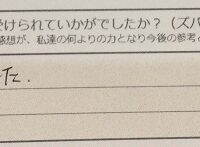 受けられていかがでしたか？（ズバ
感想が、私達の何よりの力となり今後の参考と